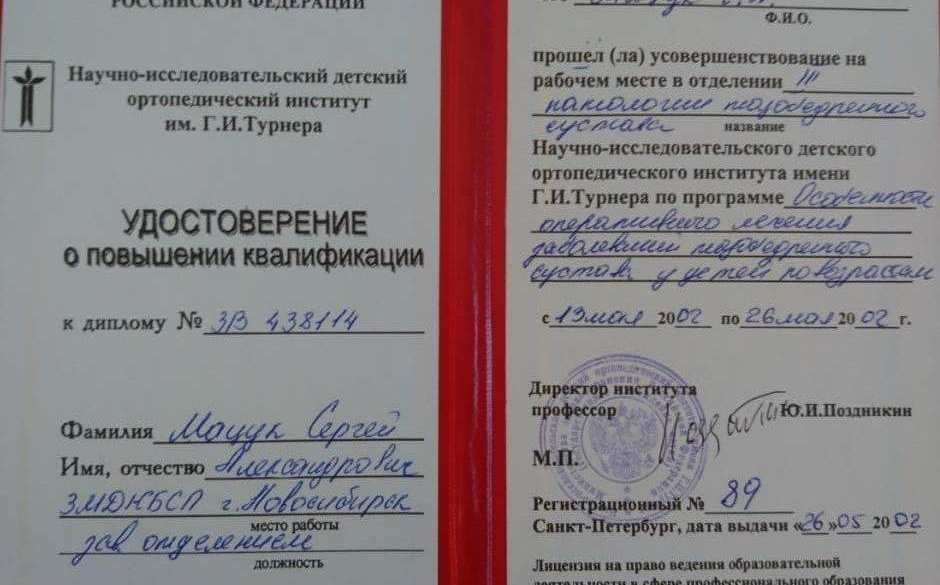 РОССИЙСКОЙ ФЕДЕРАЦИИ
Научно-исследовательский детский
ортопедический институт
им. Г.И.Турнера
УДОСТОВЕРЕНИЕ
о повышении квалификации
к диплому № ЗВ 438114
Фамилия Мацук Сергей
Имя, отчество Александрович
ЗМДКБСП г.Новосибирск
место работы
зав отделением
должность
Ф.И.О.
прошел (ла) усовершенствование на
рабочем месте в отделении III
патологии тазобедренного
сустава
название
Научно-исследовательского детского
ортопедического института имени
Г.И.Турнера по программе Особенности
оперативного лечения
заболеваний тазобедренного
сустава у детей по возрастам
с 13 мая 2002 по 26 мая 2002 г.
Директор института
профессор Ю.И.Поздникин
М.П.
Регистрационный № 89
Санкт-Петербург, дата выдачи «26»05 2002
Лицензия на право ведения образовательной
деятельности в сфере профессионального образования